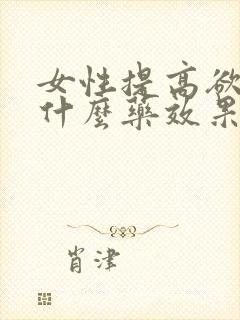 女性提高欲
什麼藥效果
肖津